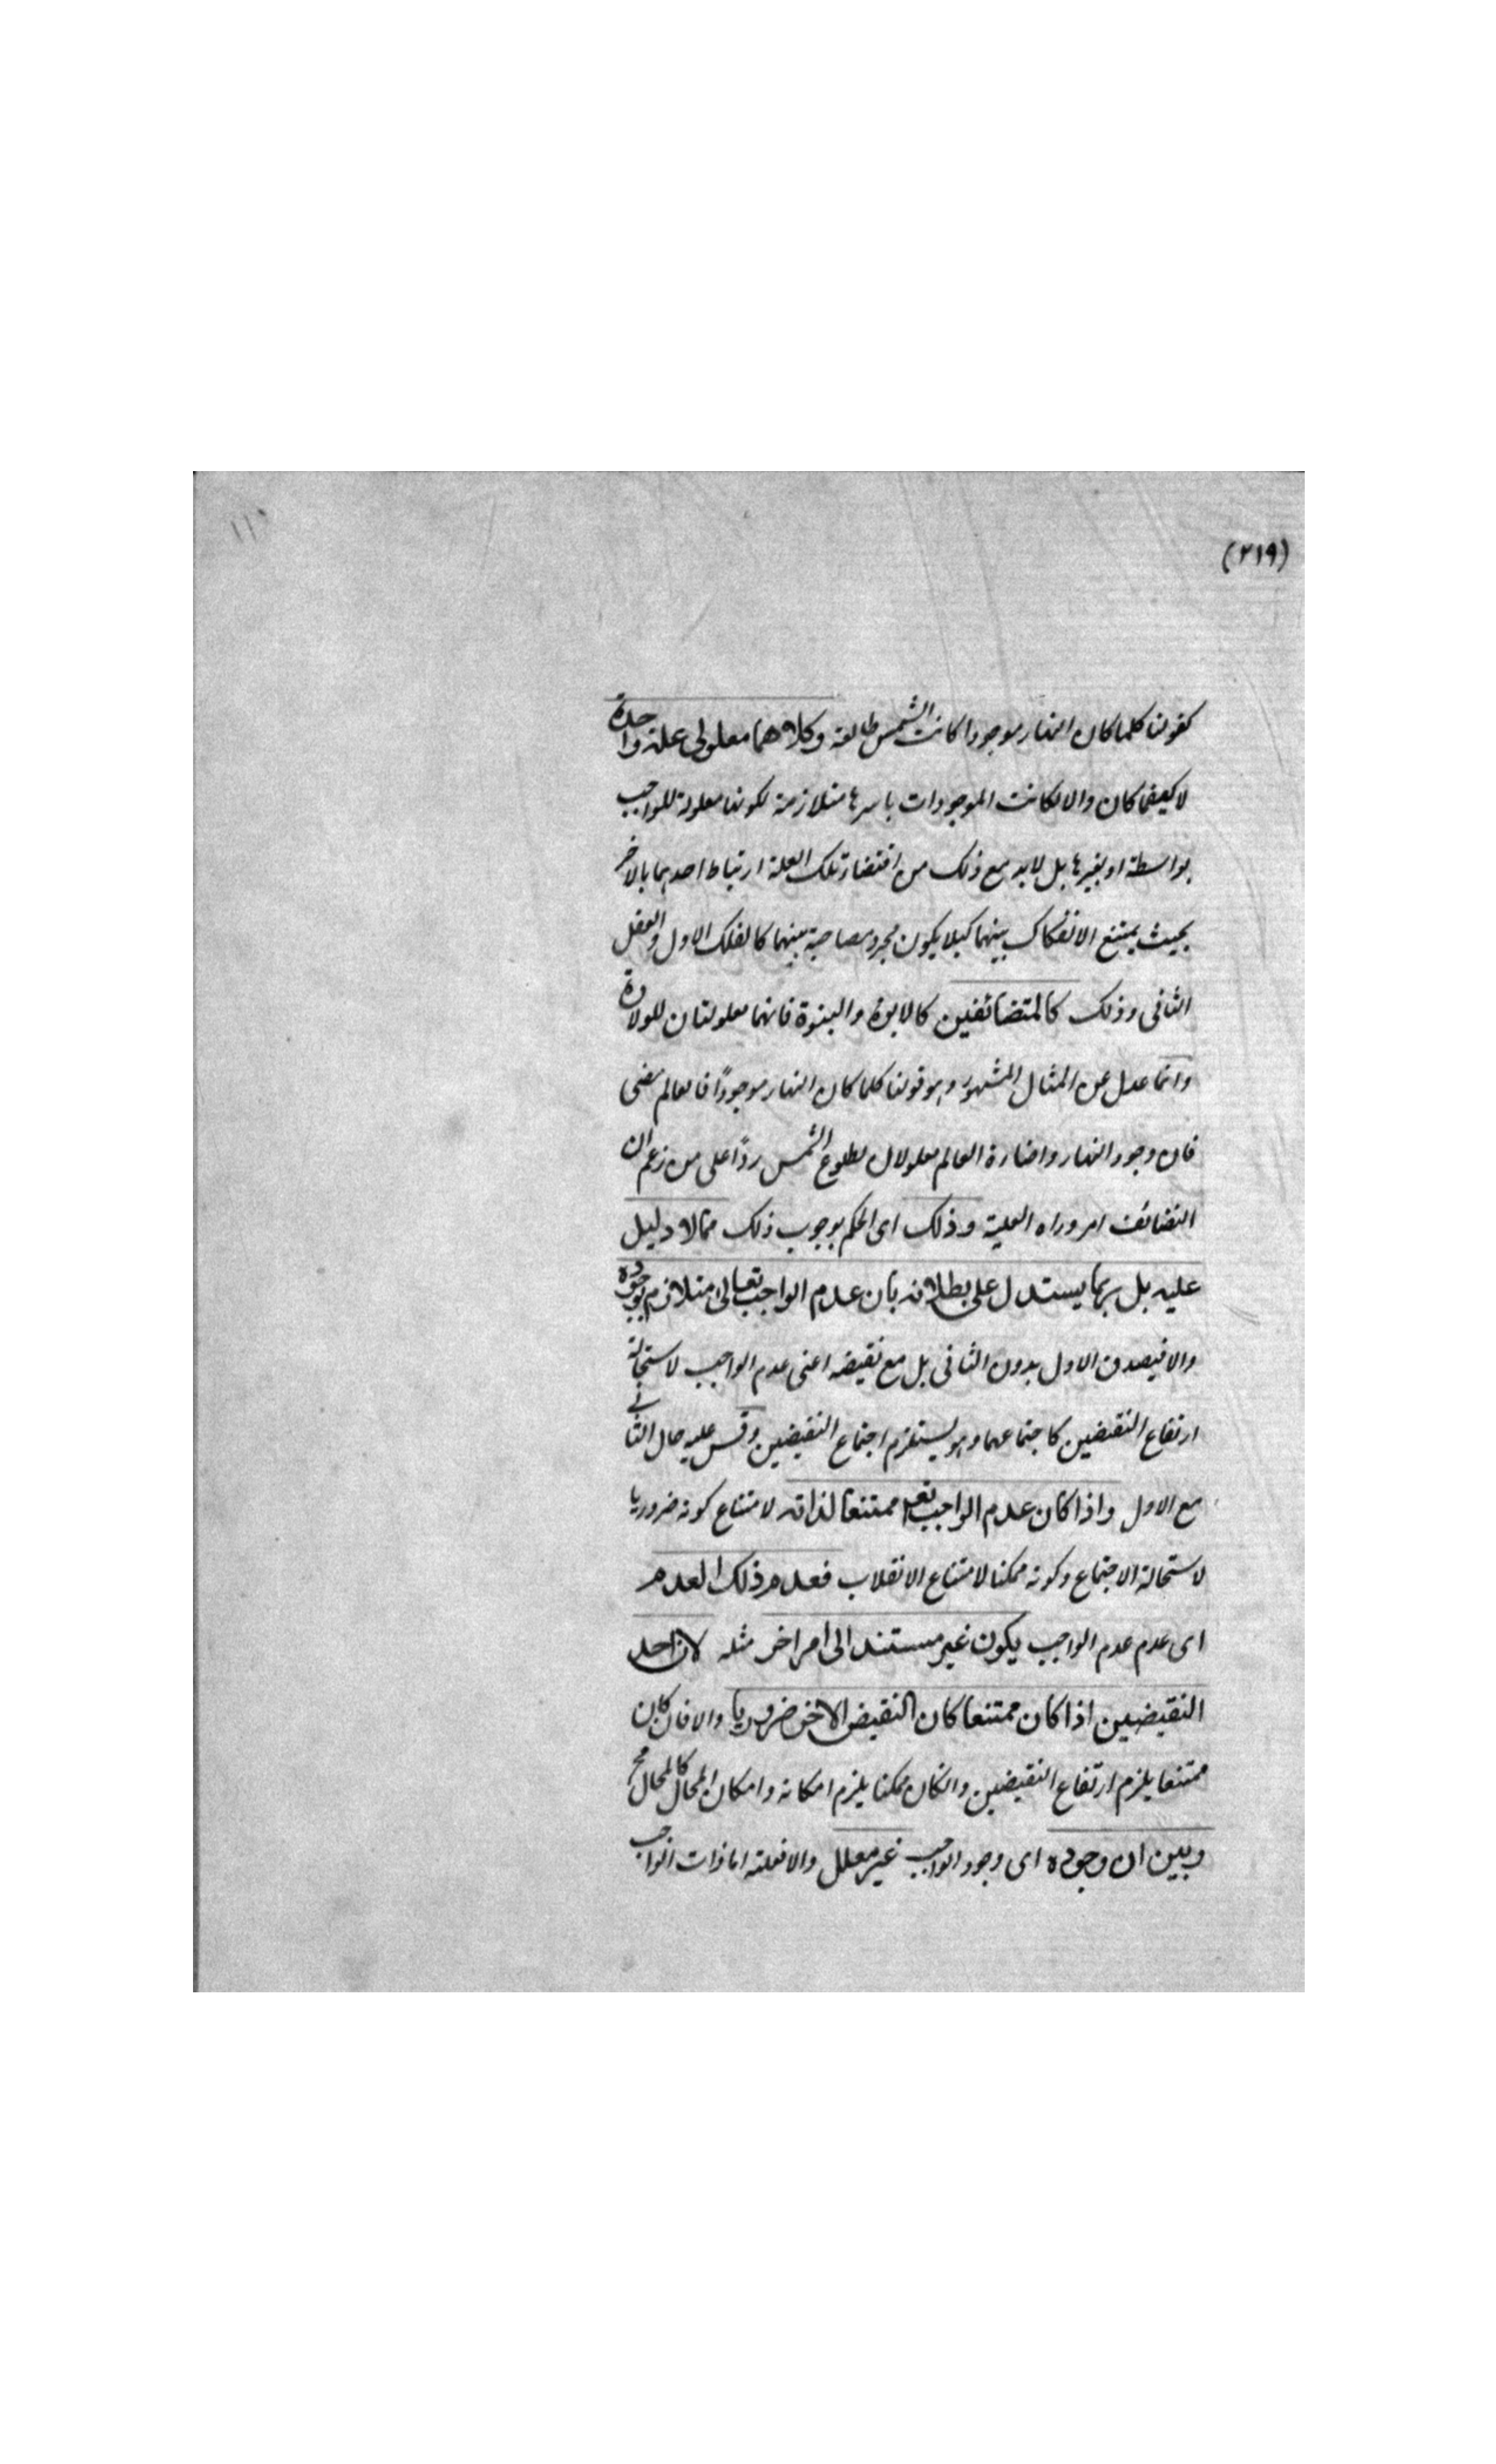 (٢١٩)
كقولنا كلما كان النهار موجودا كانت الشمس طالعة وكلاهما معلولي علة واحدة
لا كيفما كان والا لكانت الموجودات باسرها متلازمة لكونها معلولة للواجب
بواسطة او بغيرها بل لابد مع ذلك من اقتضاء تلك العلة ارتباط احدهما بالاخر
بحيث يمتنع الانفكاك بينهما كيلا يكون مجرد مصاحبة بينهما كالفلك الاول والعقل
الثاني وذلك كالمتضائفين كالابوة والبنوة فانهما معلولتان للولادة
وانما عدل عن المثال المشهور وهو قولنا كلما كان النهار موجودًا فالعالم مضي
فان وجود النهار واضاءة العالم معلولان لطلوع الشمس ردًا على من زعم ان
التضائف امر وراء العلية وذلك اى الحكم بوجوب ذلك ممالا دليل
عليه بل ربما يستدل على بطلانه بان عدم الواجب تعالى متلازم لعدم وجوده
والا فيصدق الاول بدون الثاني بل مع نقيضه اعني عدم الواجب لاستحالة
ارتفاع النقيضين كاجتماعهما وهو يستلزم اجتماع النقيضين وقس عليه حال الثاني
مع الاول واذا كان عدم الواجب تعم ممتنعا لذاته لامتناع كونه ضروريا
لاستحالة الاجتماع وكونه ممكنا لامتناع الانقلاب فعدم ذلك العدم
اى عدم عدم الواجب يكون غير مستند الى امر اخر مثله لان احد
النقيضين اذا كان ممتنعا كان النقيض الاخر ضروريا والا فان كان
ممتنعا يلزم ارتفاع النقيضين وانكان ممكنا يلزم امكانه وامكان المحال كالمحال مح
وبين ان وجوده اى وجود الواجب غير معلل والا فعلته اما ذات الواجب